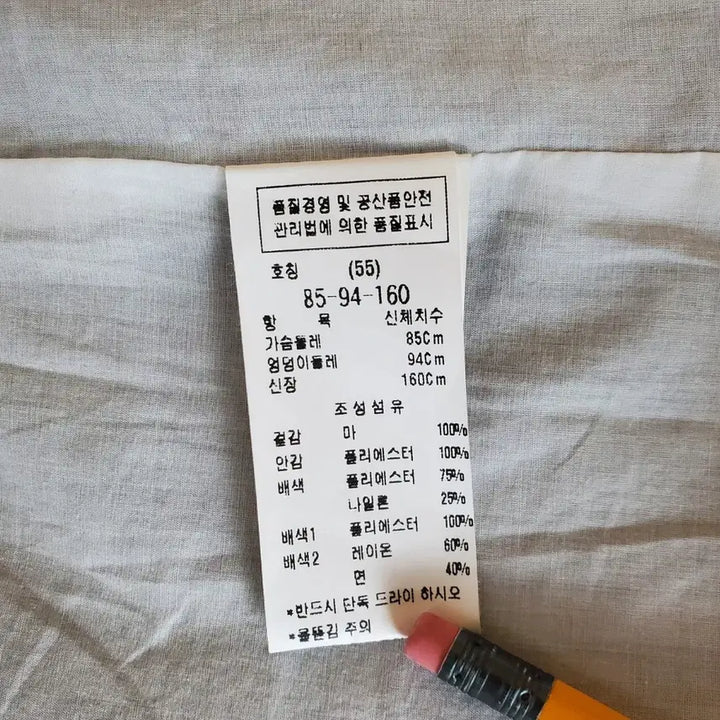 품질경영 및 공산품안전
관리법에 의한 품질표시
호칭 (55)
85-94-160
항 목 신체치수
가슴둘레 85Cm
엉덩이둘레 94Cm
신장 160Cm
조성섬유
겉감 마 100%
안감 폴리에스터 100%
배색 폴리에스터 75%
나일론 25%
배색1 폴리에스터 100%
배색2 레이온 60%
면 40%
*반드시 단독 드라이 하시오
*올뜯김 주의